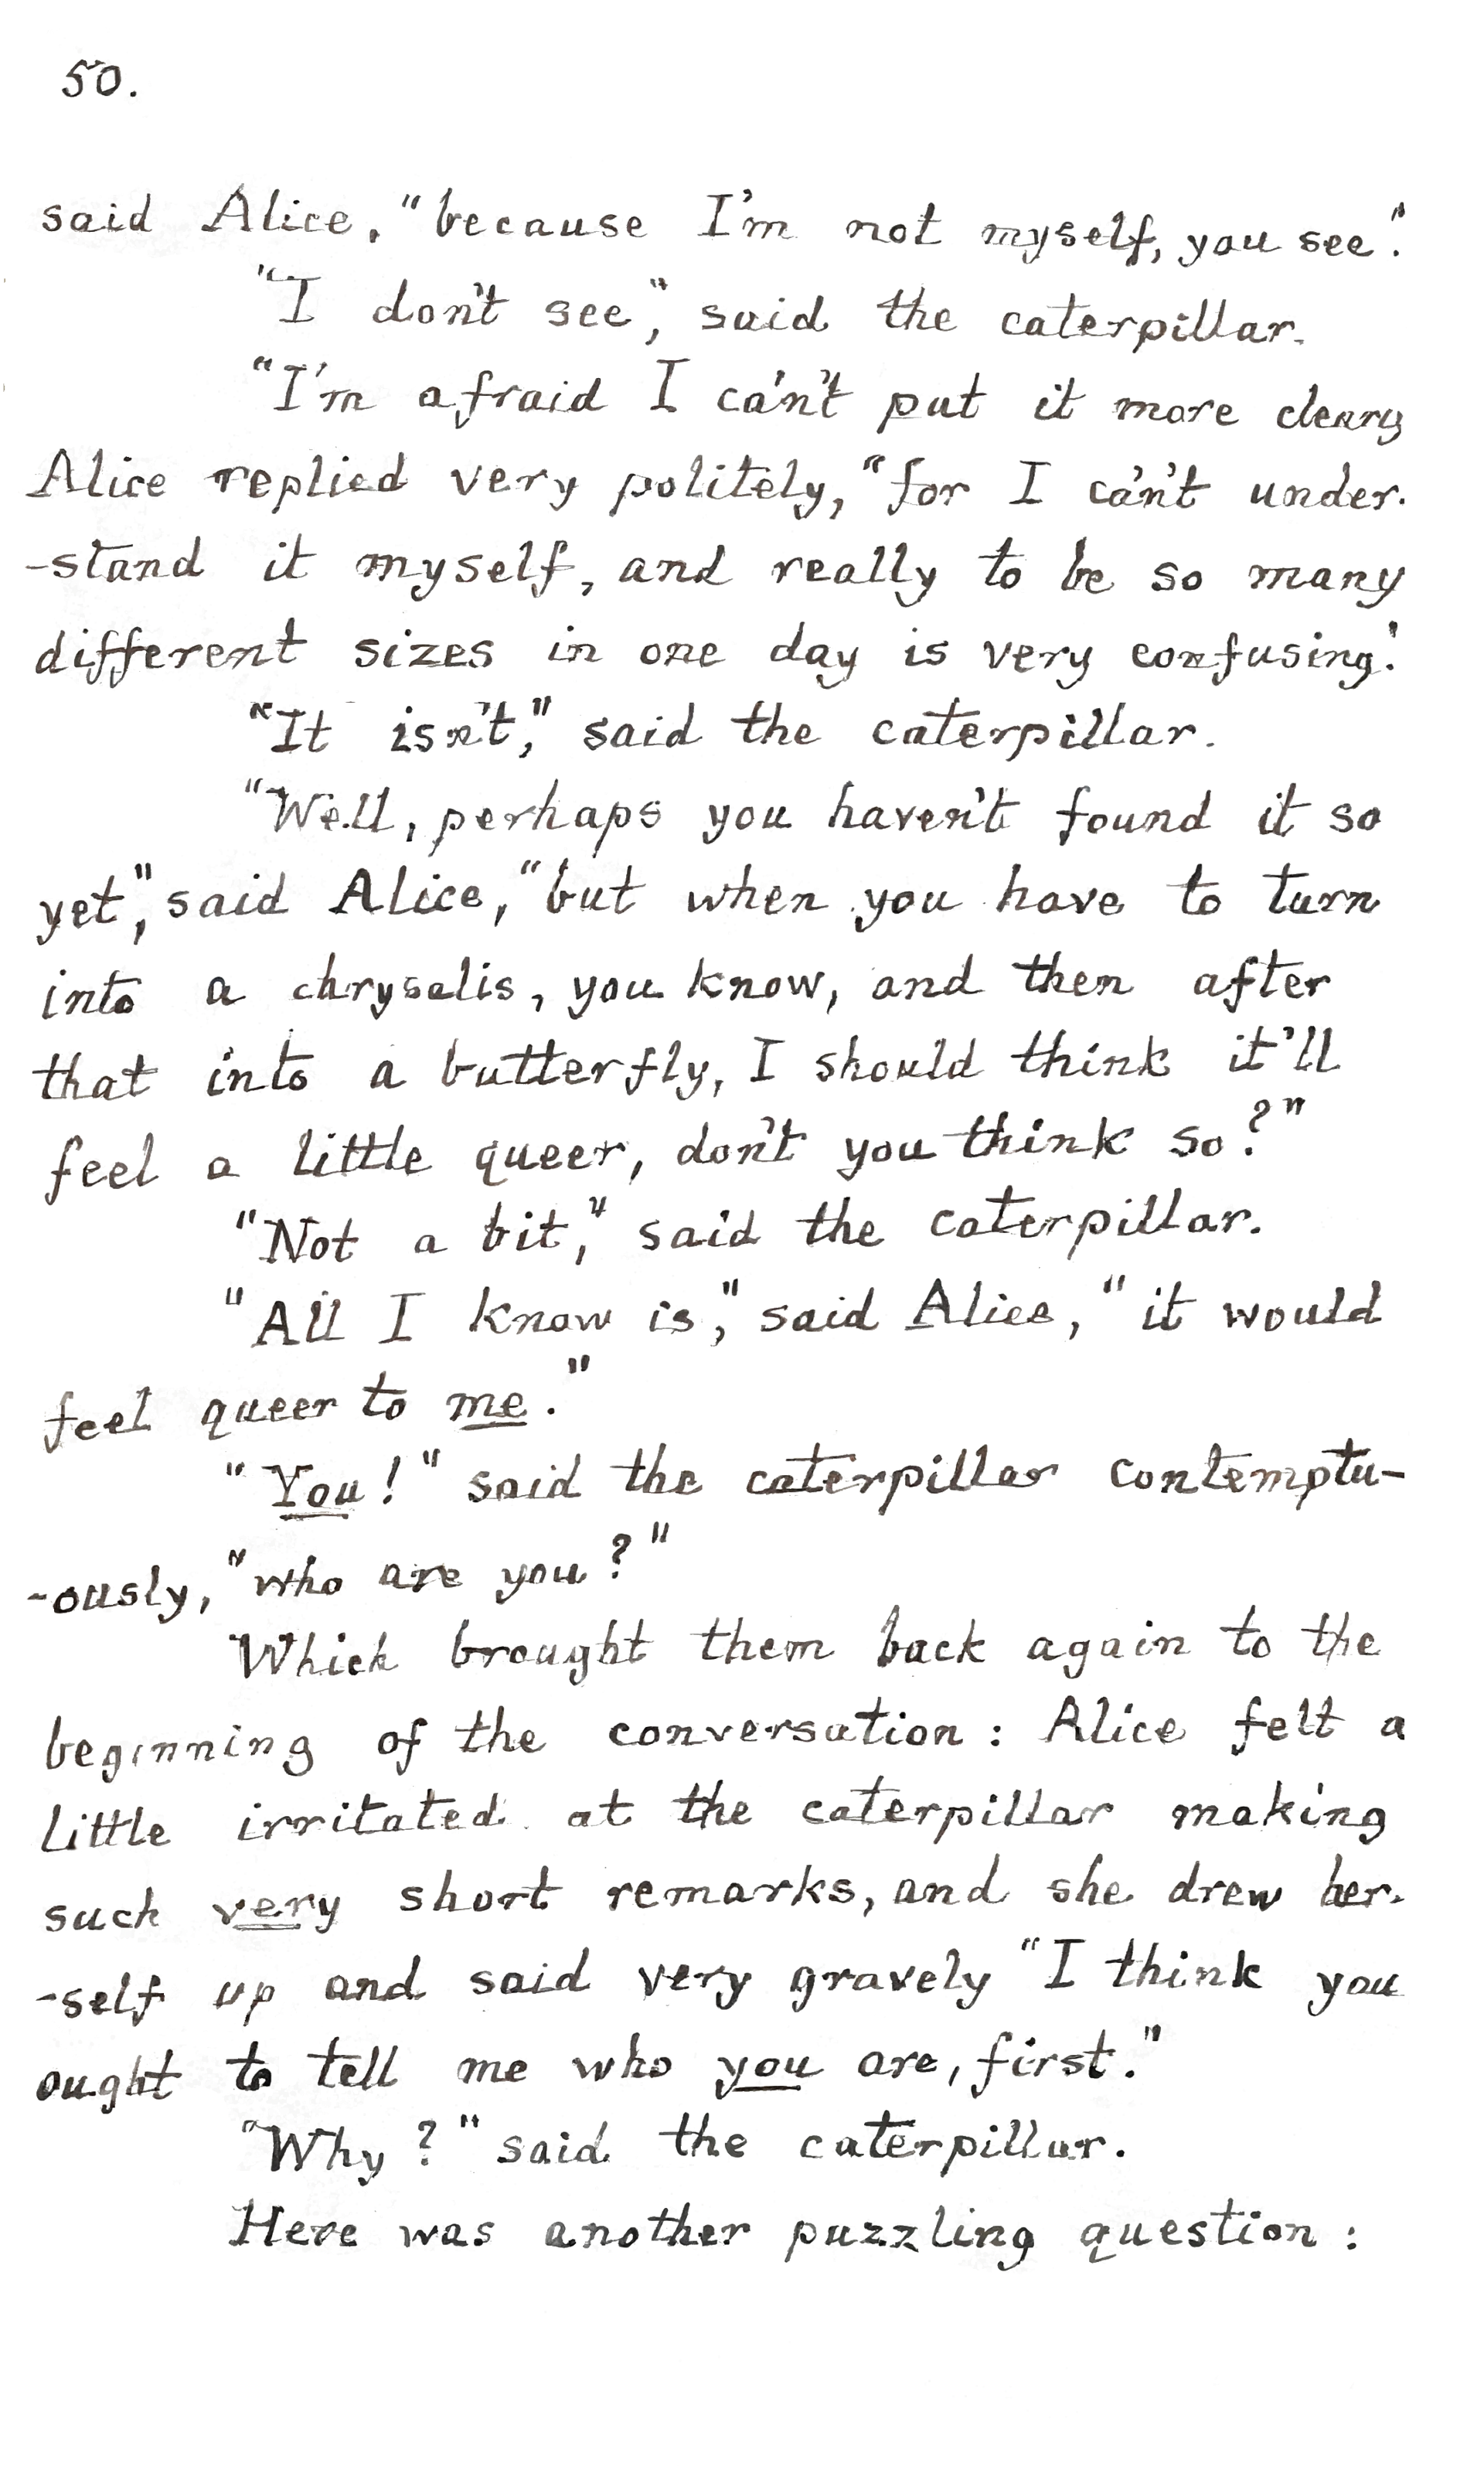 50.
said Alice, "because I'm not myself, you see."
"I don't see," said the caterpillar.
"I'm afraid I ca'n't put it more
Alice replied very politely, "for I ca'n't under-
-stand it myself, and really to be so many
different sizes in one day is very confusing."
"It isn't," said the caterpillar.
"Well, perhaps you haven't found it so
yet," said Alice, "but when you have to turn
into a chrysalis, you know, and then after
that into a butterfly, I should think it'll
feel a little queer, don't you think so?"
"Not a bit," said the caterpillar.
"All I know is," said Alice, "it would
feel queer to me."
"You!" said the caterpillar contemptu-
-ously, "who are you?"
Which brought them back again to the
beginning of the conversation: Alice felt a
little irritated at the caterpillar making
such very short remarks, and she drew her-
-self up and said very gravely "I think you
ought to tell me who you are, first."
"Why?" said the caterpillar.
Here was another puzzling question: